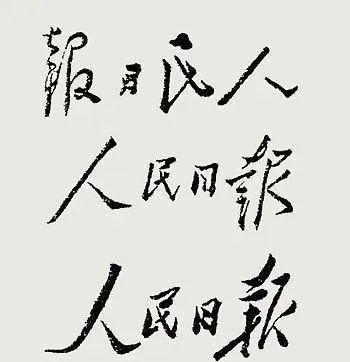 人民日報
人民日報
人民日报